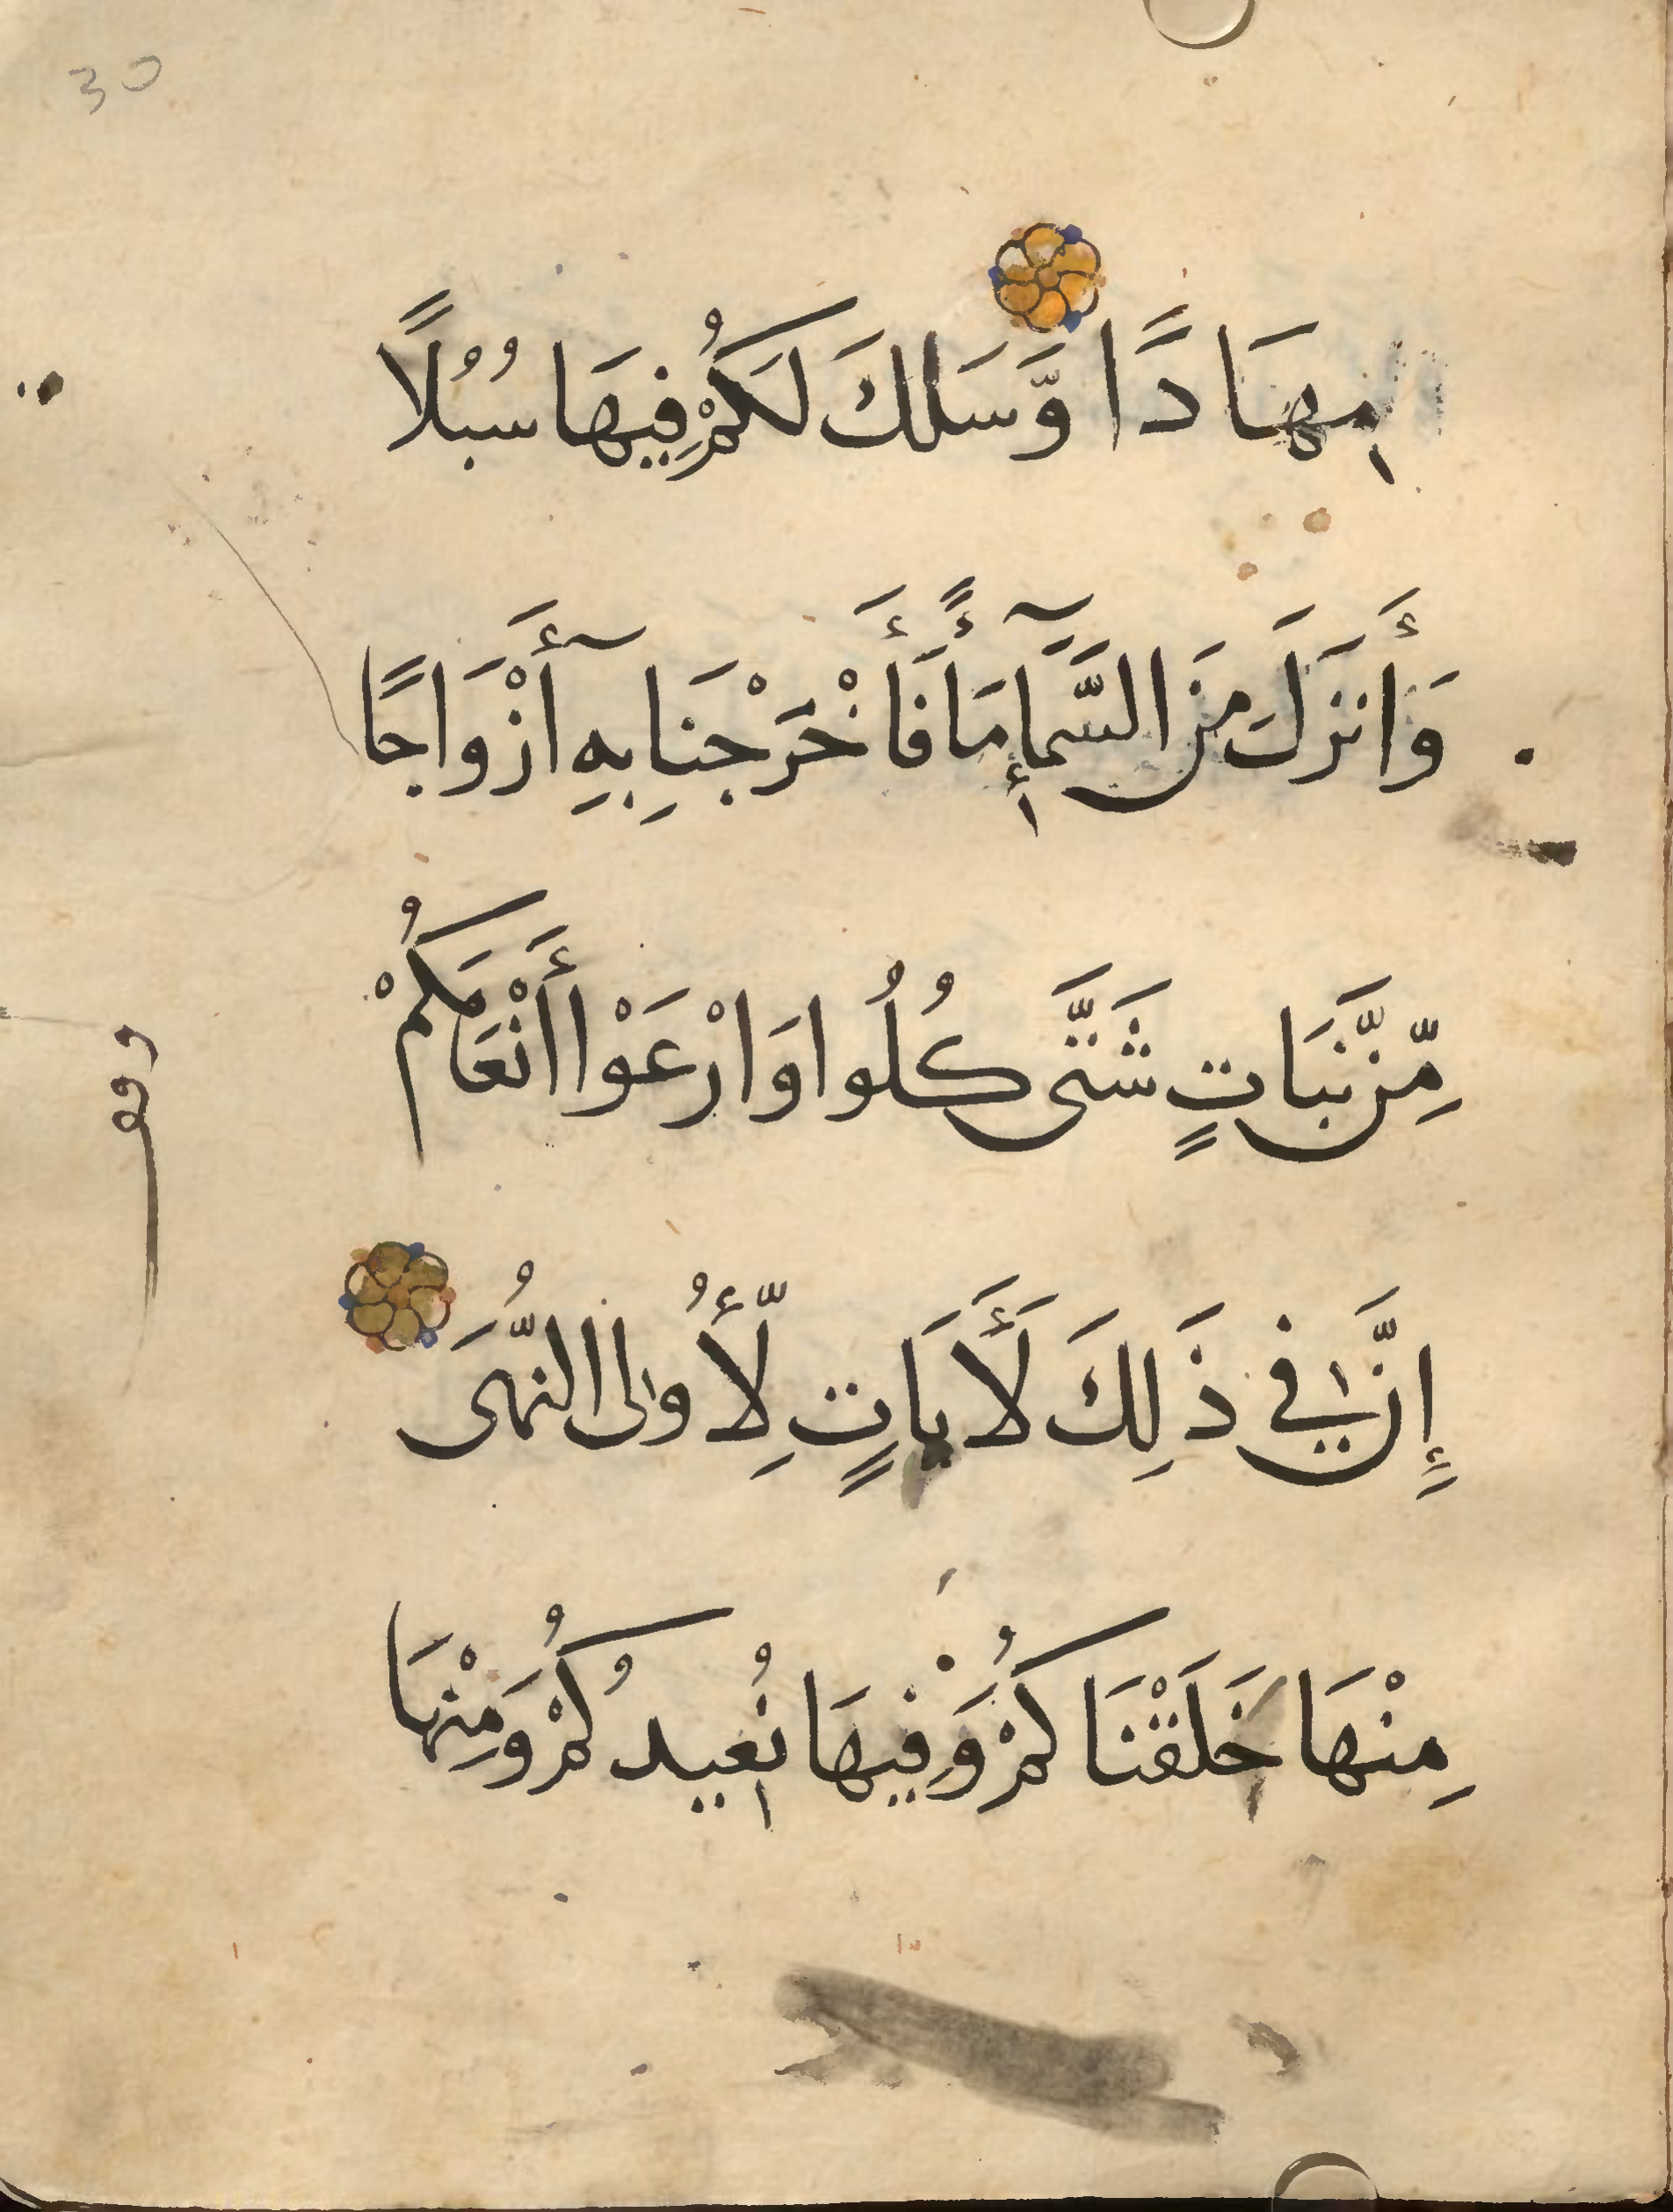 30
مِهَادًا وَّسَلَكَ لَكُمْ فِيهَا سُبُلًا
وَأَنزَلَ مِنَ السَّمَآءِ مَآءً فَأَخْرَجْنَا بِهِ أَزْوَاجًا
مِّن نَّبَاتٍ شَتَّى كُلُوا وَارْعَوْا أَنْعَامَكُمْ
إِنَّ فِي ذَلِكَ لَأَيَاتٍ لِّأُولِى النُّهَى
مِنْهَا خَلَقْنَاكُمْ وَفِيهَا نُعِيدُكُمْ وَمِنْهَا
وقف